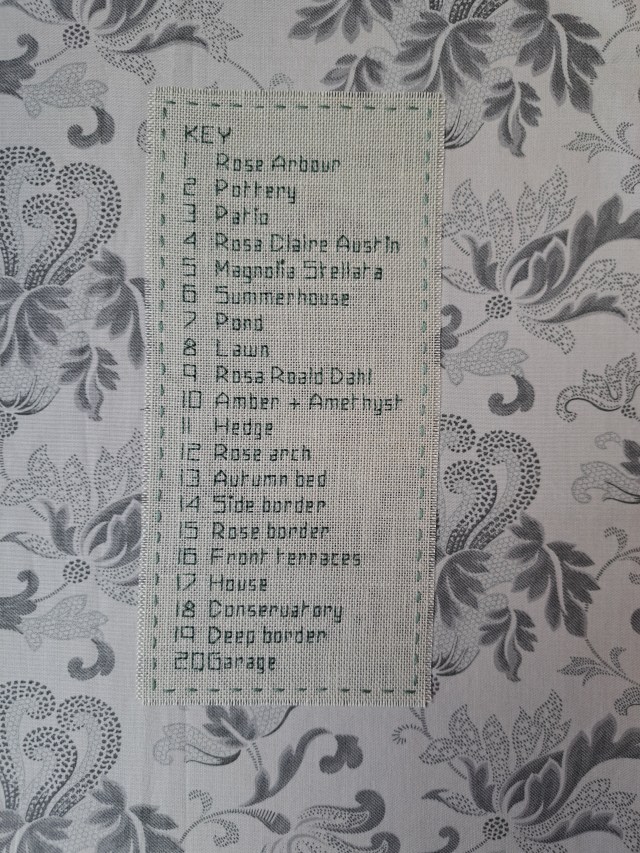 KEY
1 Rose Arbour
2 Pottery
3 Patio
4 Rosa Claire Austin
5 Magnolia Stellata
6 Summerhouse
7 Pond
8 Lawn
9 Rosa Roald Dahl
10 Amber + Amethyst
11 Hedge
12 Rose arch
13 Autumn bed
14 Side border
15 Rose border
16 Front terraces
17 House
18 Conservatory
19 Deep border
20 Garage